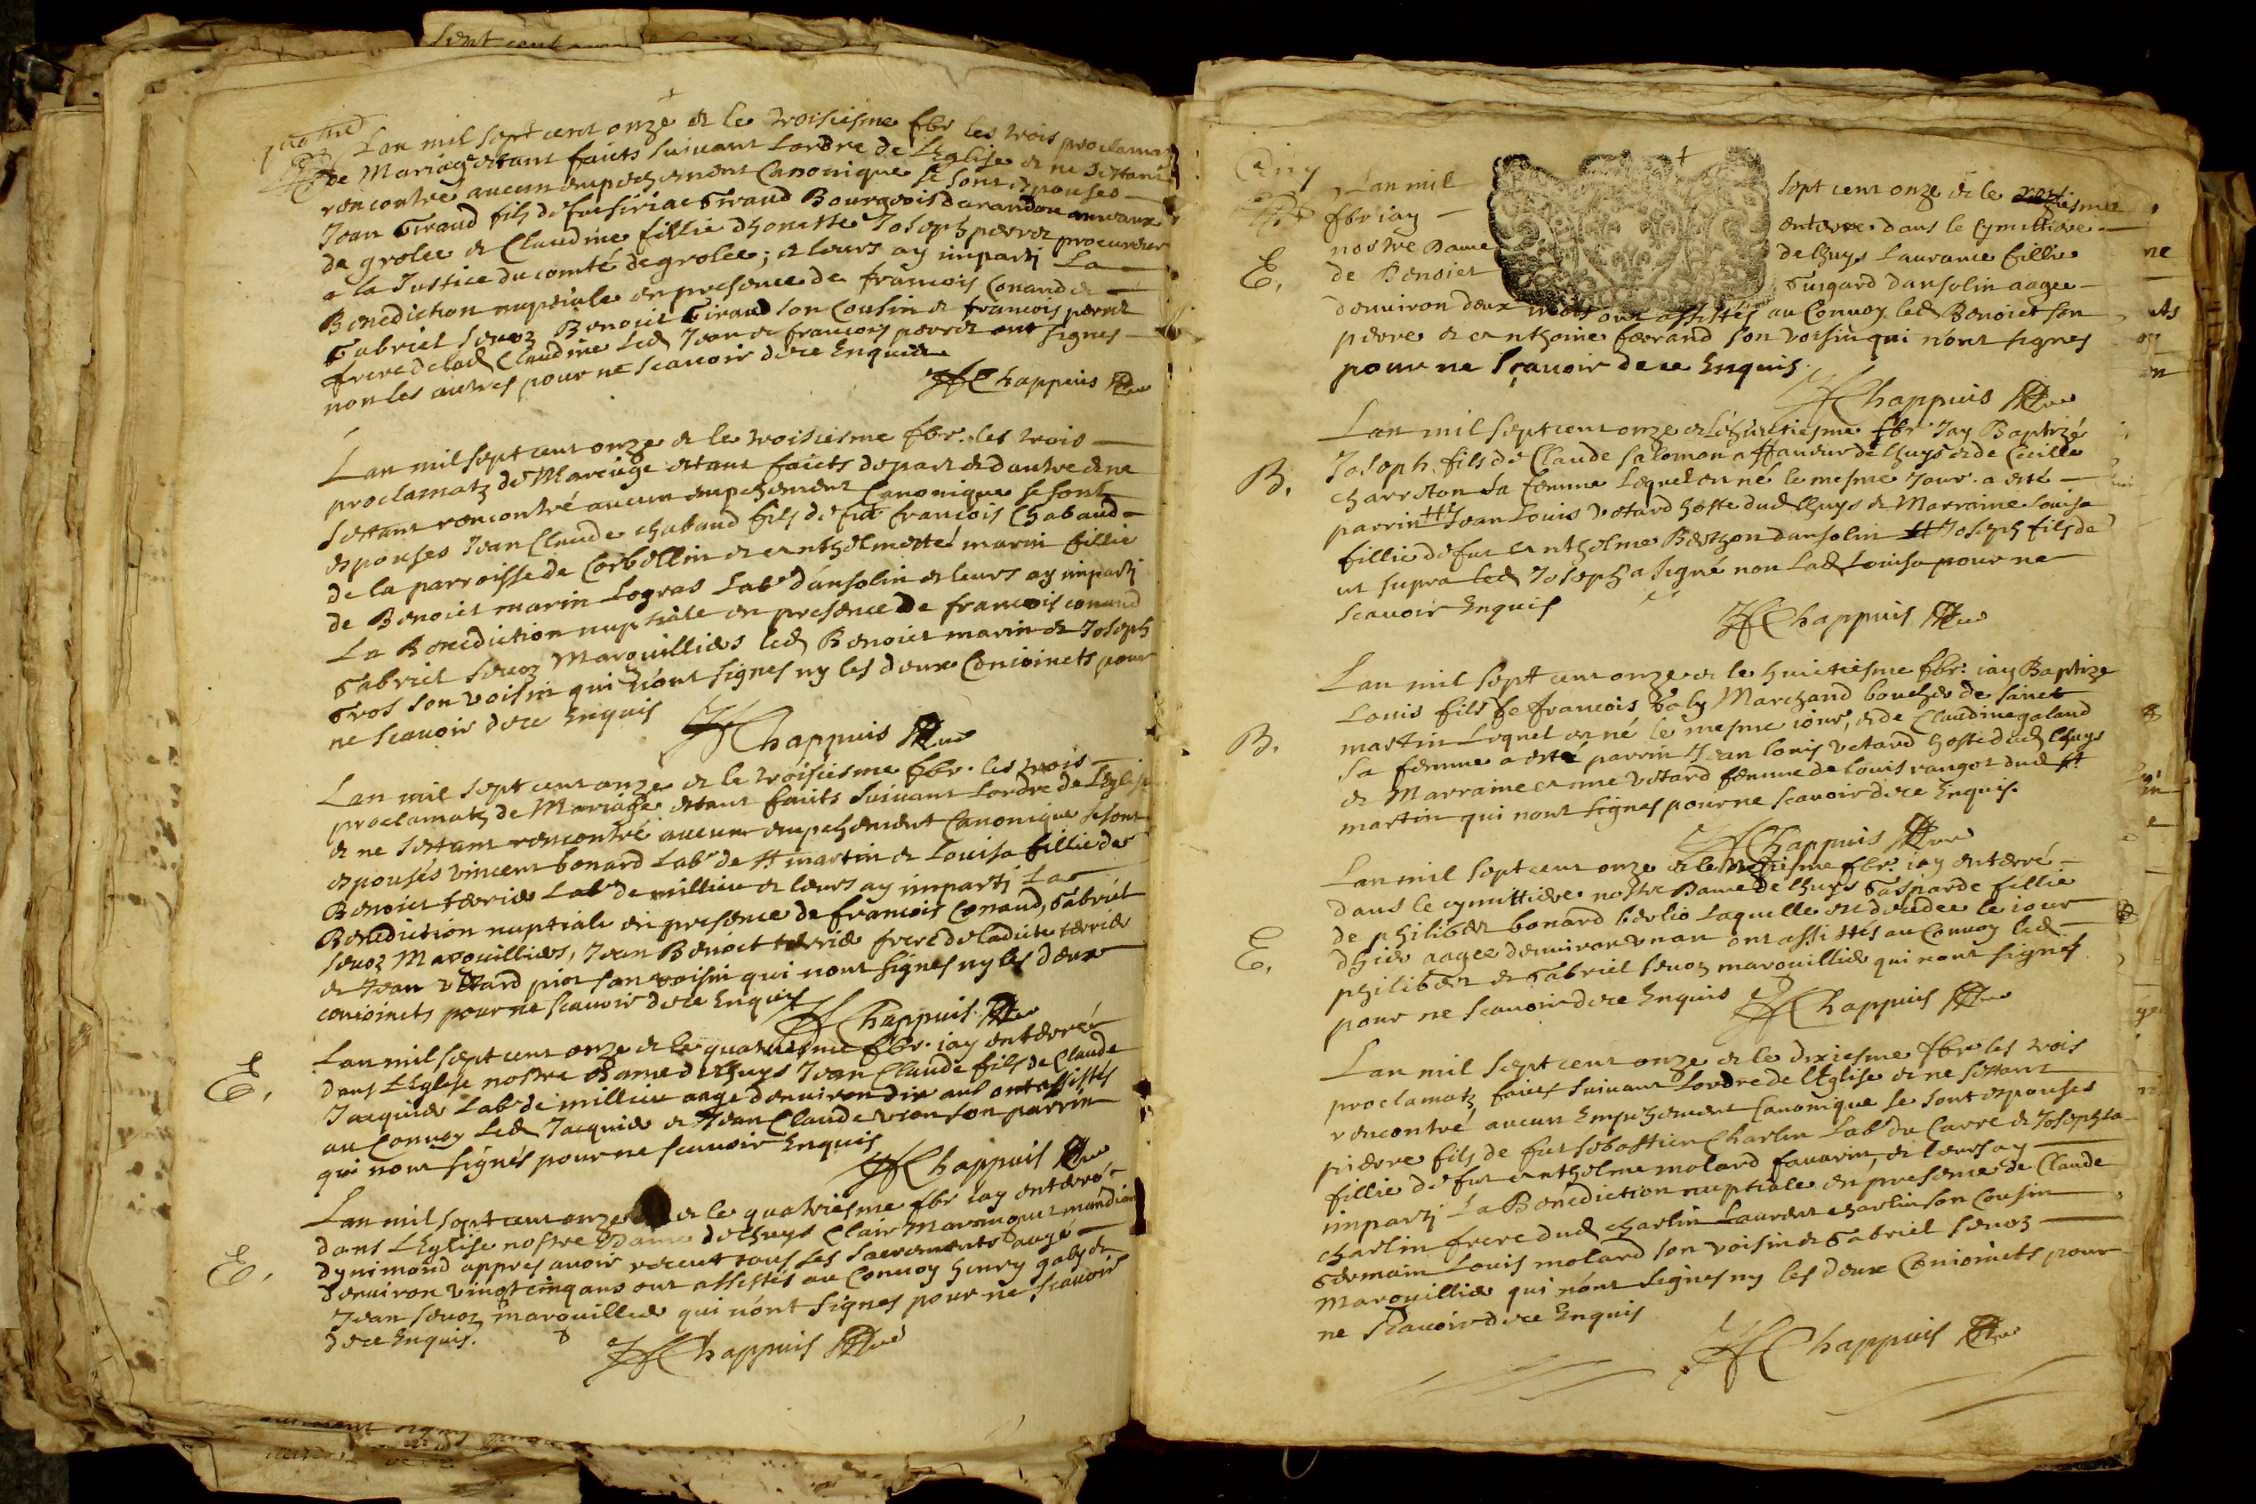 Lan mil sept cent onze et le troisiesme fbr les trois proclamatz
de Mariage estant faicts suivant Lordre de LEglise et ne sestant
rencontré aucun empechement Canonique se sont espouses
Jean Giraud filz de fut Giraud Bourgeois
de grolee et Claudine fillie dhoneste Joseph perret procureur
a la Justice du comté de grolee; et leurs ay imparti La
Benediction nuptiale en presence de francois Conand et
Gabriel Benoict Giraud son Cousin et francois perret
frere de lad Claudine led Jean et francois perret ont signes
non les autres pour ne scavoir de ce Enquis
Chappuis
Lan mil sept cent onze et le troisiesme fbr. les trois
proclamatz de Mariage estant faicts de part et dautre et ne
sestant rencontré aucun empechement Canonique se sont
espouses Jean Claude chaband filz de fut francois Chaband
de la parroisse de Corbellin et anthelmette marin fillie
de Benoict marin Logras Labr dansolin et leurs ay imparti
La Benediction nuptiale en presence de francois conand
Gabriel Marguilliers led Benoict marin et Joseph
Gros son voisin qui nont signes ny les deux Conioincts pour
ne scavoir de ce Enquis
Chappuis
Lan mil sept cent onze et le troisiesme fbr. les trois
proclamatz de Mariage estant faicts suivant Lordre de LEglise
et ne sestant rencontré aucun empechement Canonique se sont
espousés vincent bonard Labr de St martin et Louisa fillie de
Benoict Labr de millieu et leurs ay imparti La
Benediction nuptiale en presence de francois Conand, Gabriel
Marguilliers, Jean Benoict frere de ladicte
et Jean son voisin qui nont signes ny les deux
conioincts pour ne scavoir de ce Enquis
Chappuis
E. Lan mil sept cent onze et le quatriesme fbr. iay enterré
dans LEglise nostre Dame de Lhuys Jean Claude fils de Claude
Jacquier Labr de millieu aage denviron dix ans ont assistés
au Convoy led Jacquier et Jean Claude son parrin
qui nont signés pour ne scavoir Enquis
Chappuis
E. Lan mil sept cent onze et le quatriesme fbr iay enterré
dans LEglise nostre Dame de Lhuys Clair mandiant
dynimond appres avoir receut tous les sacrements aagé
denviron vingt cinq ans ont assistés au Convoy henry galy et
Jean marguillier qui nont signes pour ne scavoir
de ce Enquis.
Chappuis
E. Lan mil sept cent onze et le
fbr iay enterre dans le Cymittiere
nostre Dame de Lhuys Laurance fillie
de Benoict Guigard dansolin aagee
denviron deux mois ont assistés au Convoy led Benoict son
pere et anthoine ferrand son voisin qui nont signes
pour ne Scavoir de ce Enquis.
Chappuis
B. Lan mil sept cent onze et le huictiesme fbr Jay Baptizé
Joseph fils de Claude salomon de Lhuys et de Cecille
charreton sa femme Lequel est né le mesme Jour. a esté
parrin Jean Louis vetard hoste dud Lhuys et Marraine Louisa
fillie de fut anthelme Berthon dansolin Joseph fils de
ut supra led Joseph a signé non Lad Louisa pour ne
scavoir Enquis
Chappuis
B. Lan mil sept cent onze et le huictiesme fbr. iay Baptize
Louis fils de francois Galy Marchand boucher de sainct
martin Lequel est né le mesme iour, et de Claudine galand
sa femme a esté parrin Jean Louis vetard hoste dud Lhuys
et Marraine anne vetard femme de Louis rangot dud St
martin qui nont signes pour ne scavoir de ce Enquis.
Chappuis
E. Lan mil sept cent onze et le fbr. iay enterré
dans le cymittiere nostre Dame de Lhuys Gasparde fillie
de philibert bonard Laquelle est decedee le iour
dhier aagee denviron un an ont assistés au Convoy led
philibert et Gabriel marguillier qui nont signes
pour ne scavoir de ce Enquis
Chappuis
Lan mil sept cent onze et le dixiesme fbr les trois
proclamatz faicts suivant Lordre de LEglise et ne sestant
rencontré aucun Empechement Canonique se sont espouses
pierre filz de fut sebastien Charlin Labr du Carre et Josephta
fillie de fut anthelme molard favarin, et leurs ay
imparti La Benediction nuptiale en presence de Claude
charlin frere dud charlin Laurent charlin son Cousin
Germain Louis molard son voisin et Gabriel
Marguillier qui nont signes ny les deux Conioincts pour
ne scavoir de ce Enquis
Chappuis